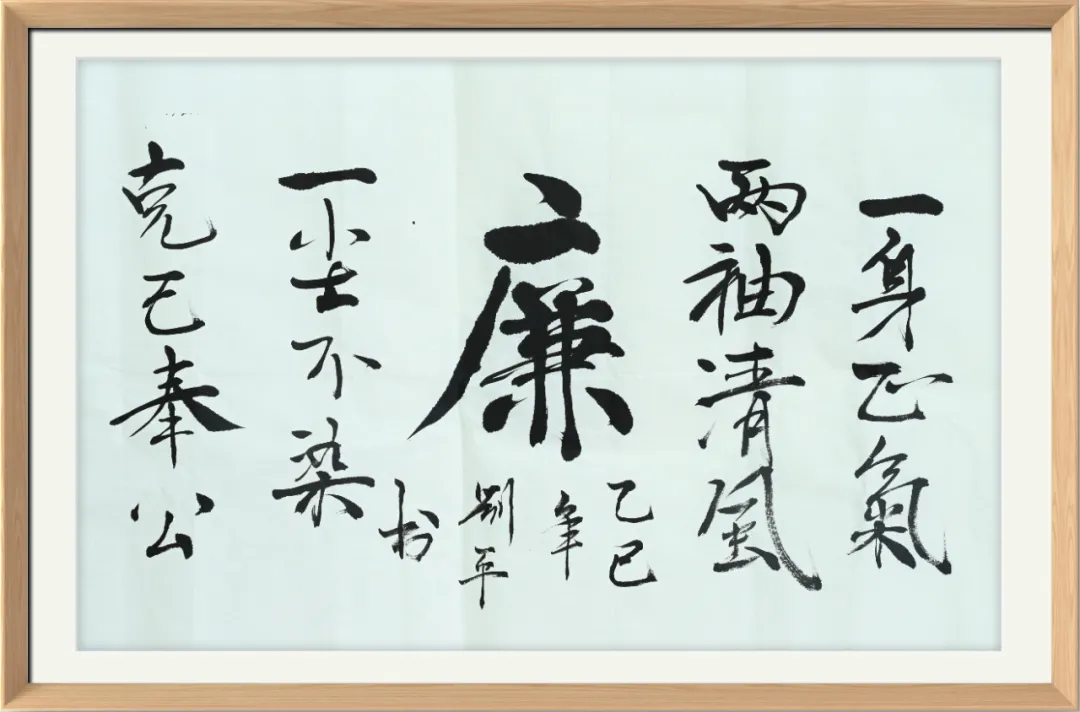 一身正氣
两袖清風
廉
乙巳
年
劉平
书
一尘不染
克己奉公